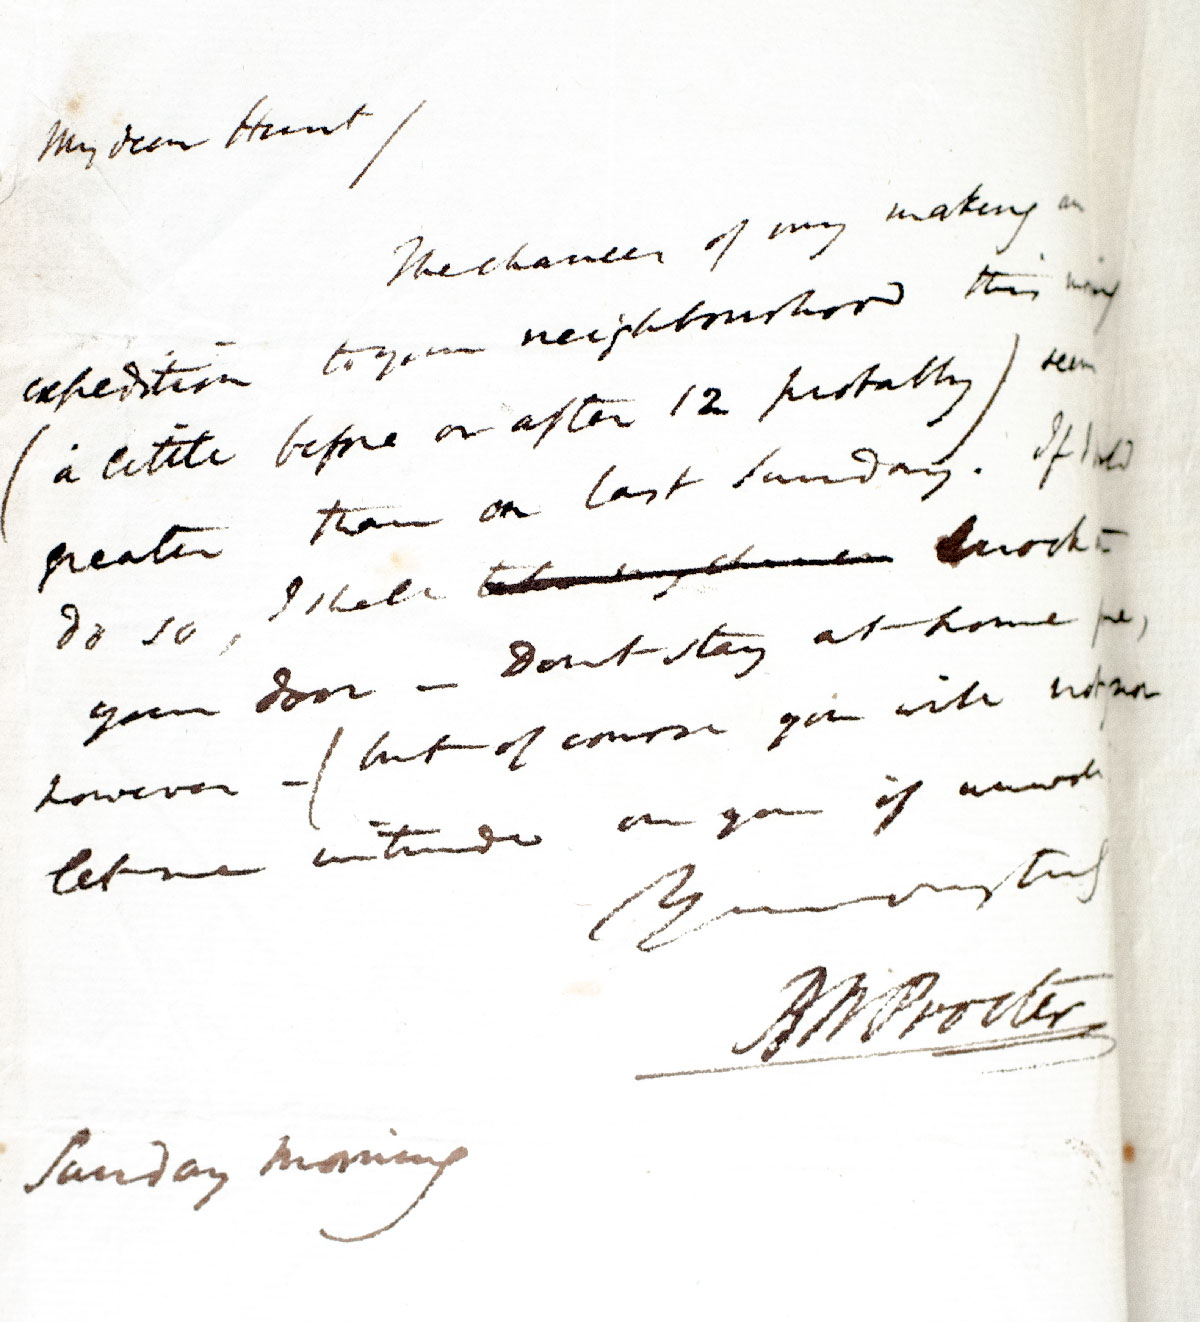 My dear Hunt/
The chances of my making an
expedition to your neighbourhood this morng
(a little before or after 12 probably) seem
greater than on last Sunday. If I should
do so, I shall take my chance knock at
your door — Dont stay at home for me,
however — (but of course you will not now
let me intrude on you if unwell
Yours very truly
B W Procter
Sunday Morning